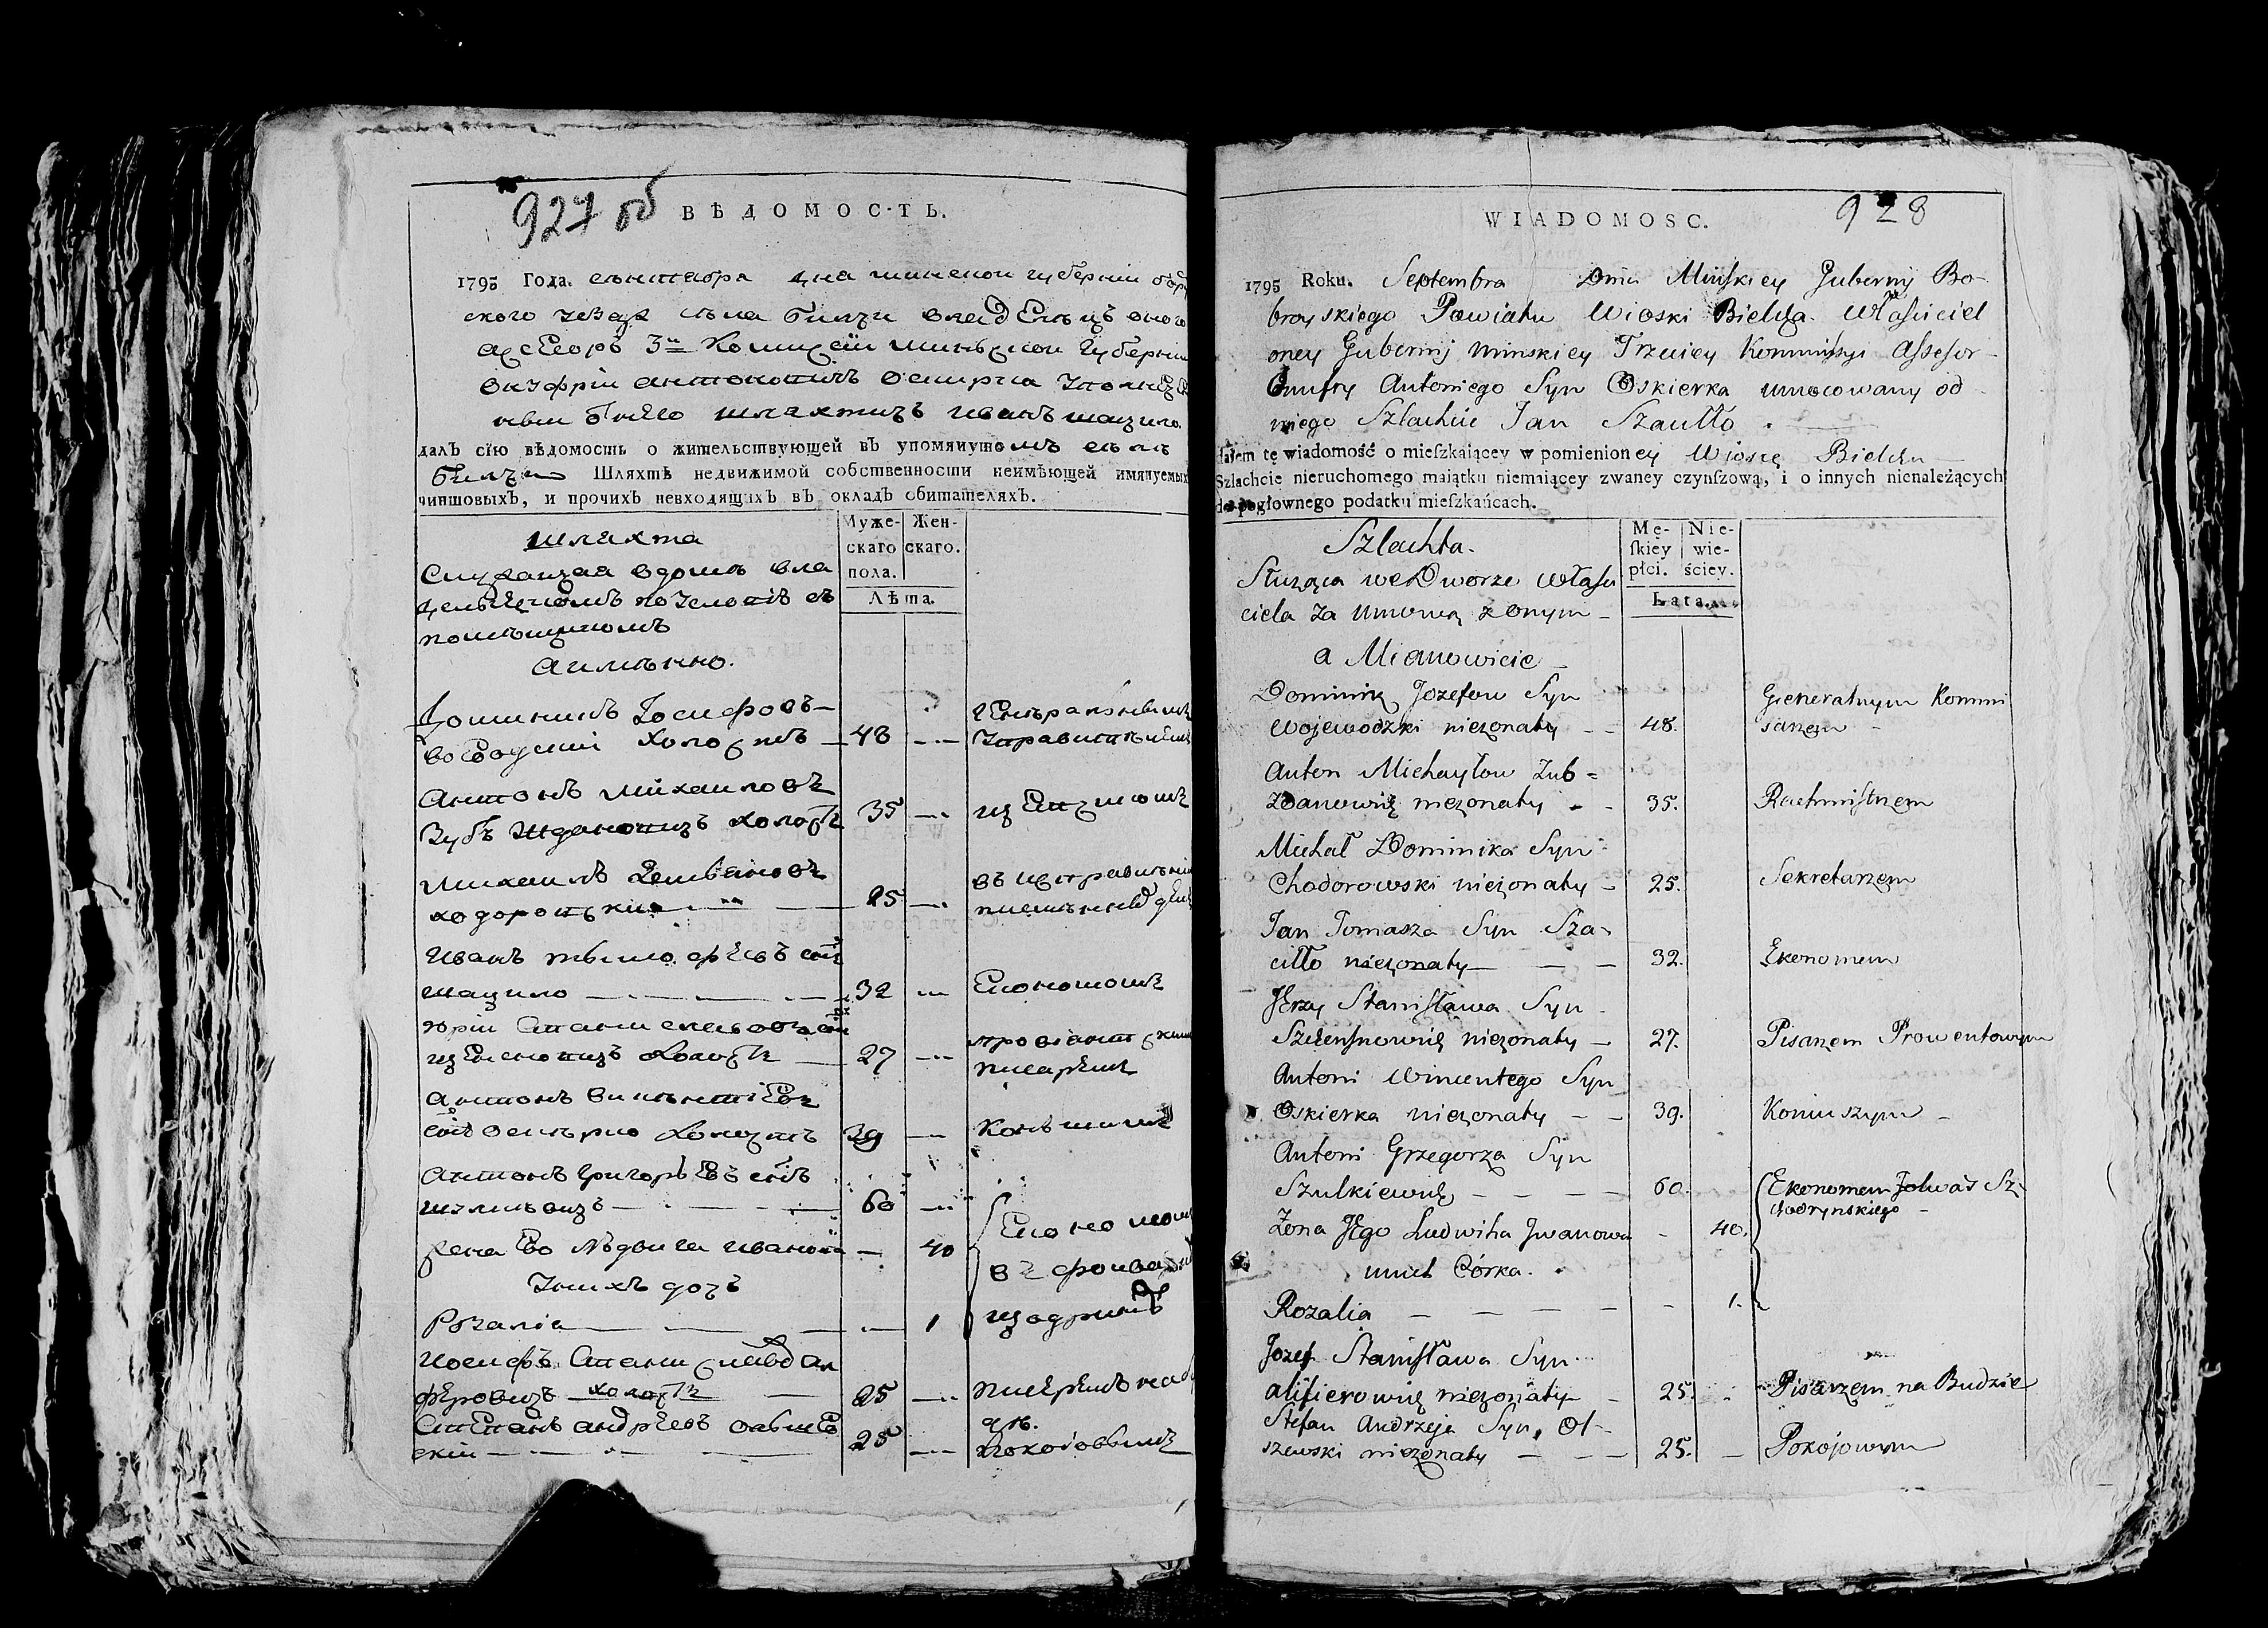 927 об
ВѢДОМОСТЬ.
1795 Года. сентября дня минской губерніи бобр
ского уезда села билчи владелецъ оного
асесоръ 3й Комисѣи минъской губерніи
онуфріи антоновичъ оскирка уполн
ный отнего шляхтичъ иванъ шацило
далъ сїю вѣдомость о жительствующей въ упомянутомъ селѣ
билчи Шляхтѣ недвижимой собственности неимѣющей имянуемых
чиншовыхъ, и прочихъ невходящихъ въ окладъ обитателяхъ.
шляхта
Служащая вдоме вла
дельческомъ поусловіе съ
помещикомъ
аимѣнно.
Муже-
скаго
пола.
Жен-
скаго.
Лѣта.
Доминикъ Іосифовъ
воеводский холостъ 48 генъральнымъ
управителемъ
Антонъ михаиловъ
Зубъ жданотичъ холостъ 35
михаилъ
ходоровъский 25 въ исправлении
писменныхъ делъ
иванъ сынъ
шацило 32 Економомъ
юрій станиславовъ сынъ
холостъ 27 провіантскимъ
писаремъ
антонъ викентіевъ
сынъ оскѣрко холостъ 39 конюшимъ
антонъ григорьевъ сынъ
60
жена Ево людвига иванова 40 Економомъ
вѣ фолварку
уних дочь
Розалія 1 щадрине
иосифъ станиславовъ ал
феровичъ холостъ 25 писаремъ на бу
де.
степанъ андреевъ олшев
ский 25 покоіовымъ
928
WIADOMOSC.
1795 Roku. Septembra Dnia Minskiey Gubernij Bo-
bruyskiego Powiatu Wioski Bielcza. Właściciel
oney Gubernij minskiey Trzeciey Kommissyi Assesor
Onufry Antoniego Syn Oskierka umocowany od
niego Szlachcic Jan Szaciłło
dałem tę wiadomość o mieszkaiącey w pomienioney Wioscę Bielczu
Szlachcie nieruchomego maiątku niemaiącey zwaney czynszową, i o innych nienależących
do pogłownego podatku mieszkańcach.
Szlachta.
Służąca we Dworze własci
ciela za umową z onym
a Mianowicie
Mę-
skiey
płci.
Nie-
wie-
ściey.
Lata.
Dominik Jozefow Syn Generalnym Kommi
Wojewodzki nieżonaty 48. sarzem
Anton Michayłow Zub=
Zdanowicz nieżonaty 35. Rachmistrzem
Michał Dominika Syn
Chodorowski nieżonaty 25. Sekretarzem
Jan Tomasza Syn Sza-
ciłło nieżonaty 32. Ekonomem
Jerzy Stanisława Syn
nieżonaty 27. Pisarzem Prowentowym
Antoni Wincentego Syn
Oskierka nieżonaty 39. Koniuszym
Antoni Grzegorza Syn
Szulkiewicz 60. Ekonomem folwar Sz-
czadrynskiego
Żona Jego Ludwika Jwanowa 40.
unich Córka.
Rozalia 1.
Jozef Stanisława Syn
alifierowicz nieżonaty 25. Pisarzem na Budzie
Stefan Andrzeja Syn, Ol-
szewski nieżonaty 25. Pokojowym